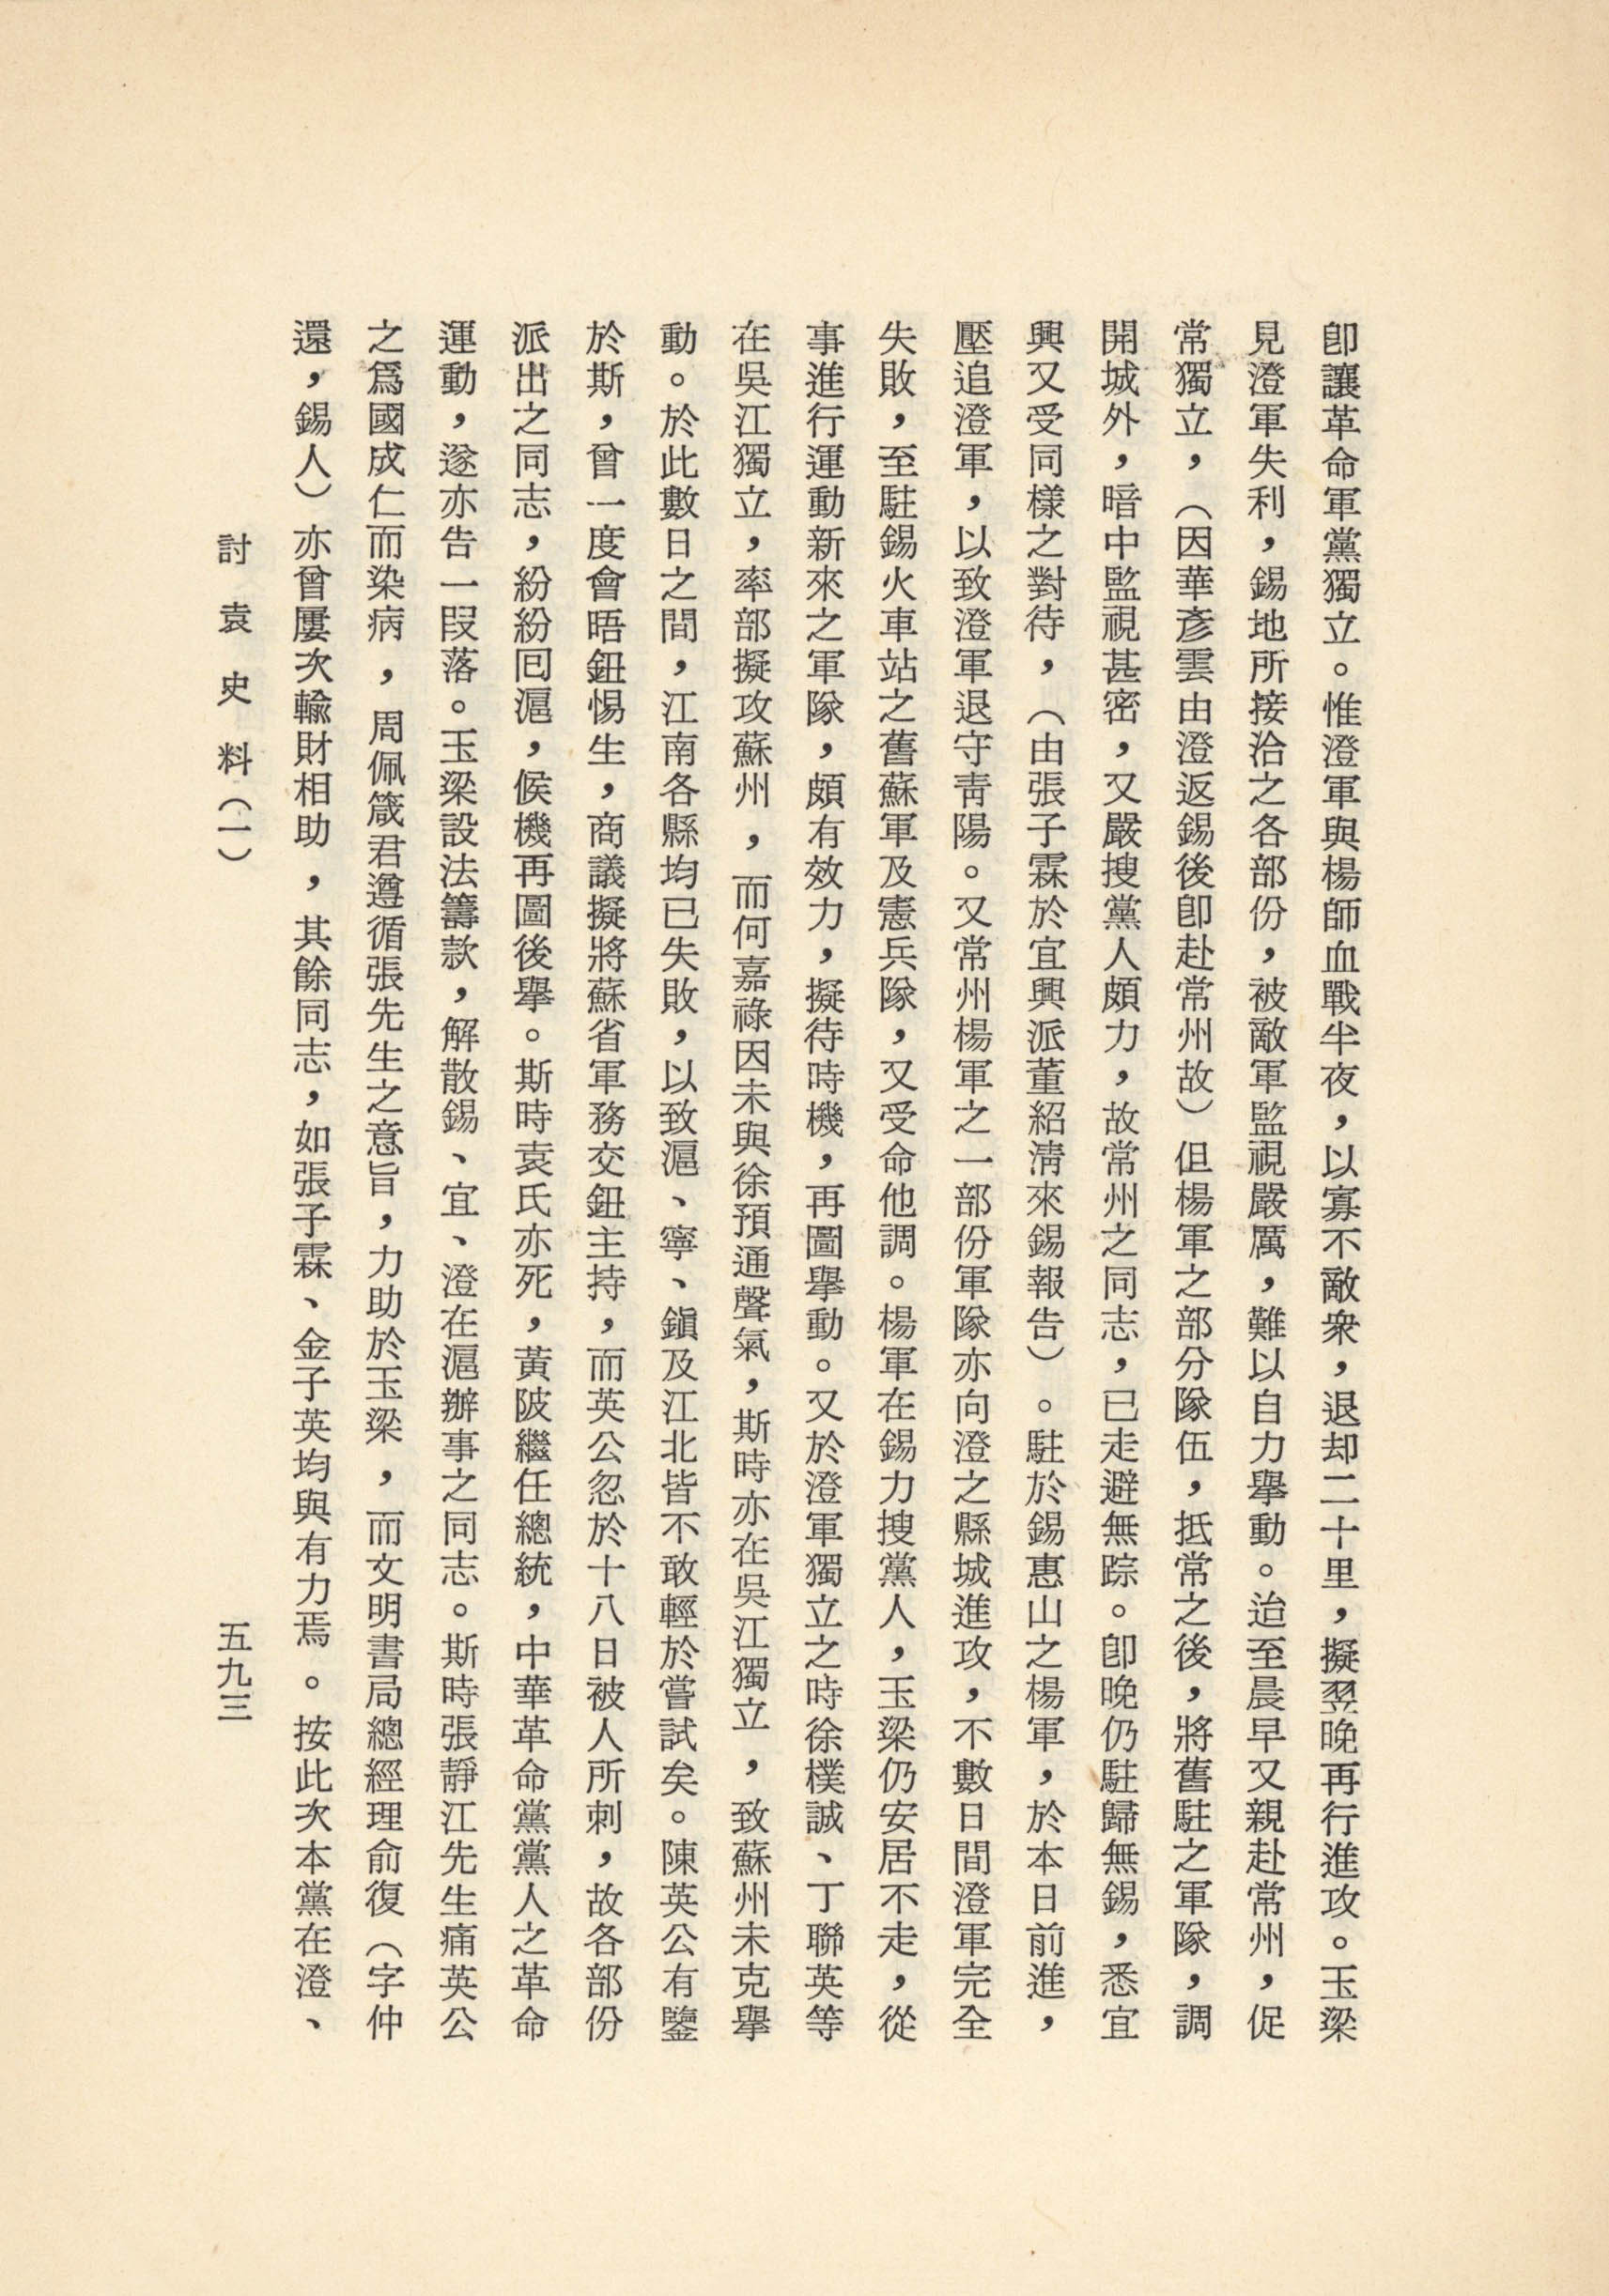 卽讓革命軍黨獨立。惟澄軍與楊師血戰半夜，以寡不敵衆，退却二十里，擬翌晚再行進攻。玉梁
見澄軍失利，錫地所接洽之各部份，被敵軍監視嚴厲，難以自力擧動。迨至晨早又親赴常州，促
常獨立，（因華彥雲由澄返錫後卽赴常州故）但楊軍之部分隊伍，抵常之後，將舊駐之軍隊，調
開城外，暗中監視甚密，又嚴搜黨人頗力，故常州之同志，已走避無踪。卽晚仍駐歸無錫，悉宜
興又受同樣之對待，（由張子霖於宜興派董紹淸來錫報告）。駐於錫惠山之楊軍，於本日前進，
壓追澄軍，以致澄軍退守靑陽。又常州楊軍之一部份軍隊亦向澄之縣城進攻，不數日間澄軍完全
失敗，至駐錫火車站之舊蘇軍及憲兵隊，又受命他調。楊軍在錫力搜黨人，玉梁仍安居不走，從
事進行運動新來之軍隊，頗有效力，擬待時機，再圖擧動。又於澄軍獨立之時徐樸誠、丁聯英等
在吳江獨立，率部擬攻蘇州，而何嘉祿因未與徐預通聲氣，斯時亦在吳江獨立，致蘇州未克擧
動。於此數日之間，江南各縣均已失敗，以致滬、寧、鎭及江北皆不敢輕於嘗試矣。陳英公有鑒
於斯，曾一度會晤鈕惕生，商議擬將蘇省軍務交鈕主持，而英公忽於十八日被人所刺，故各部份
派出之同志，紛紛囘滬，候機再圖後擧。斯時袁氏亦死，黃陂繼任總統，中華革命黨黨人之革命
運動，遂亦告一段落。玉梁設法籌款，解散錫、宜、澄在滬辦事之同志。斯時張靜江先生痛英公
之爲國成仁而染病，周佩箴君遵循張先生之意旨，力助於玉梁，而文明書局總經理俞復（字仲
還，錫人）亦曾屢次輸財相助，其餘同志，如張子霖、金子英均與有力焉。按此次本黨在澄、
討袁史料（一）
五九三